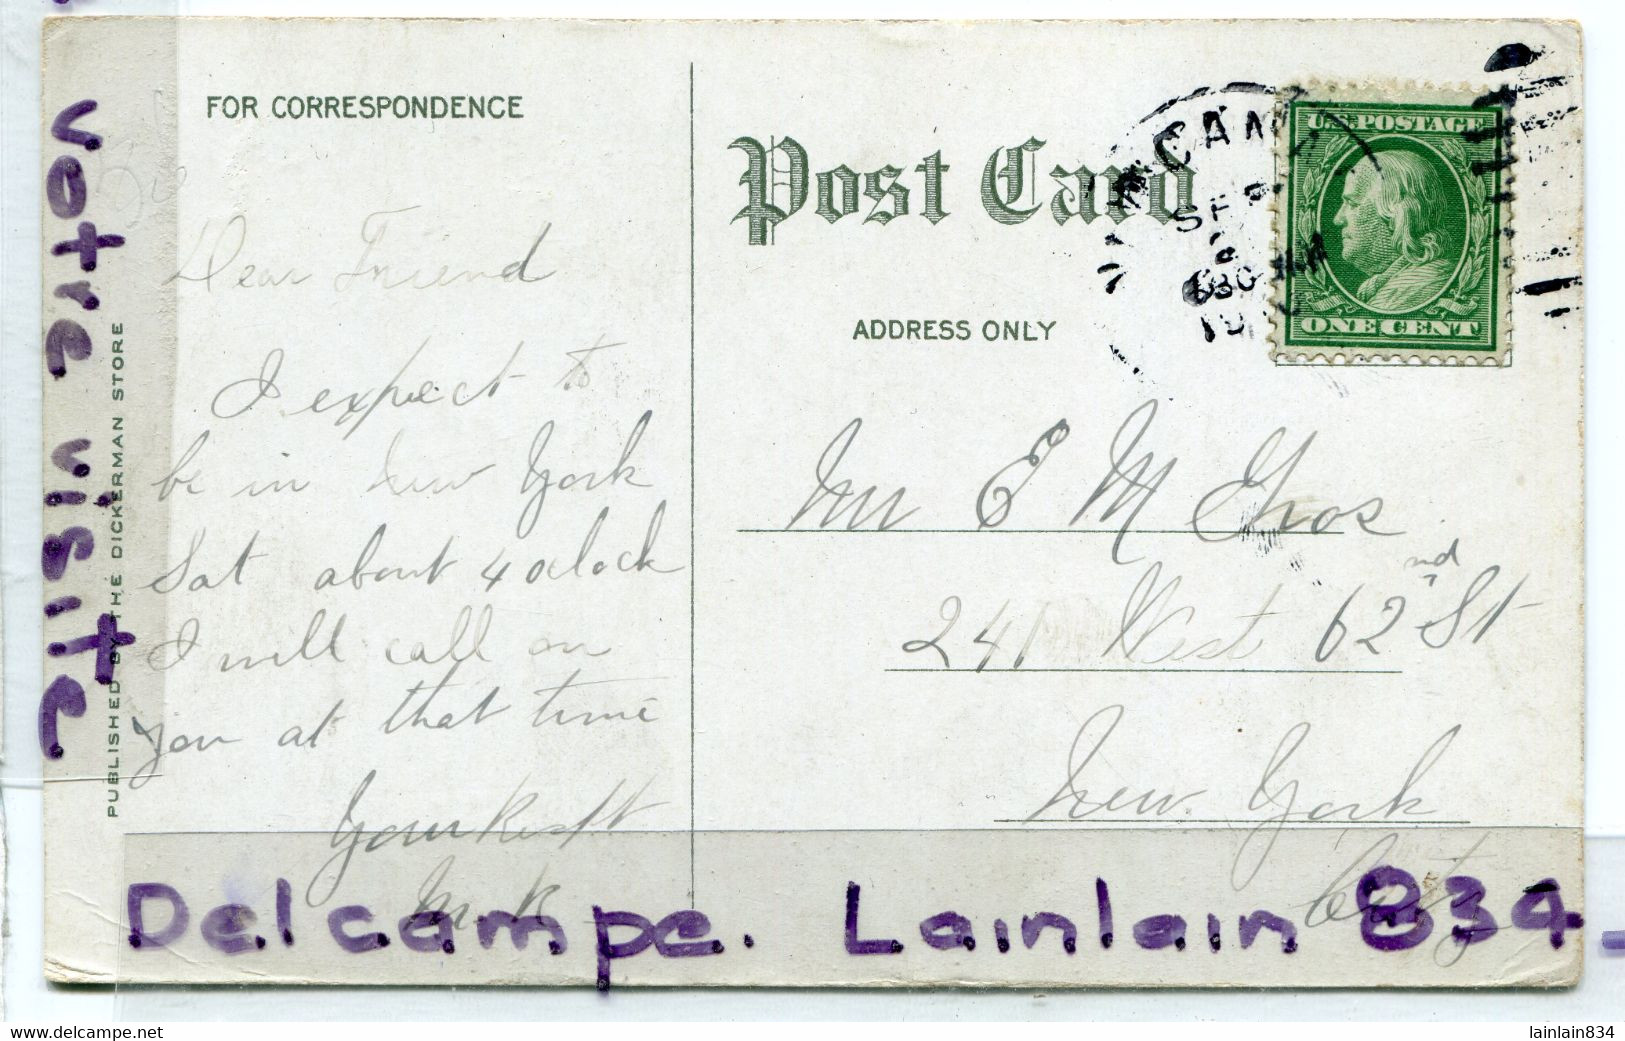 FOR CORRESPONDENCE
Dear Friend
I expect to
be in New York
Sat about 4 oclock
I will call on
you at that time
PUBLISHED BY THE DICKERMAN STORE
Post Card
ADDRESS ONLY
U.S. POSTAGE
ONE CENT
Mr E M
241 West 62nd St
New York
City
votre visite
Delcampe. Lainlain 834-
www.delcampe.net
lainlain834